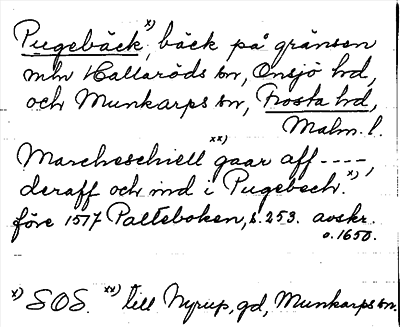 Pugebäck x), bäck på gränsen
mln Hallaröds sn, Onsjö hd,
och Munkarps sn, Frosta hd,
Malm. l.
Marcheschiell xx) gaar aff - - - -
deraff och ind i Pugebech. x),
före 1517 Palteboken, s. 253. avskr.
o. 1650.
x) SOS. xx) till Nyrup, gd, Munkarps sn.